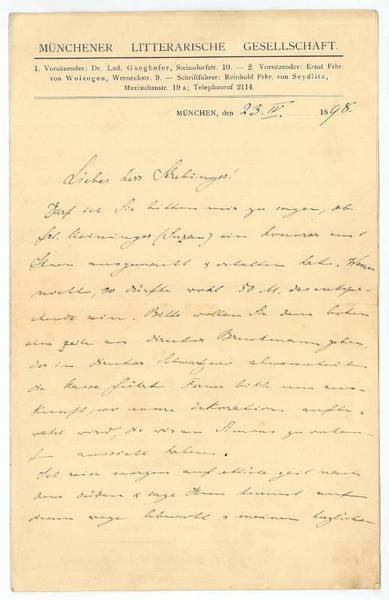 MÜNCHENER LITTERARISCHE GESELLSCHAFT.
1. Vorsitzender: Dr. Lud. Ganghofer, Steinsdorfstr. 10. — 2. Vorsitzender: Ernst Frhr.
von Wolzogen, Werneckstr. 9. — Schriftführer: Reinhold Frhr. von Seydlitz,
Maximilianstr. 19 a; Telephonruf 2114.
MÜNCHEN, den 23. IV. 1898.
Lieber Herr
Darf ich Sie bitten mir zu sagen, ob
Frl. Meininger (Susan) ein honorar mit
Ihnen ausgemacht & erhalten hat. Wenn
nicht, so dürfte wohl 50 M. das entspre-
chende sein. Bitte wollen Sie dem boten
eine zeile an direktor geben,
der in direktor abwesenheit
die kasse führt. Ferner bitte um aus-
kunft, wo unsere dekoration aufbe-
wahrt wird, die wir an zu
aussicht haben.
Ich reise morgen auf etliche zeit nach
dem süden & sage Ihnen auf
diesem wege lebewohl & meinen herzlichen